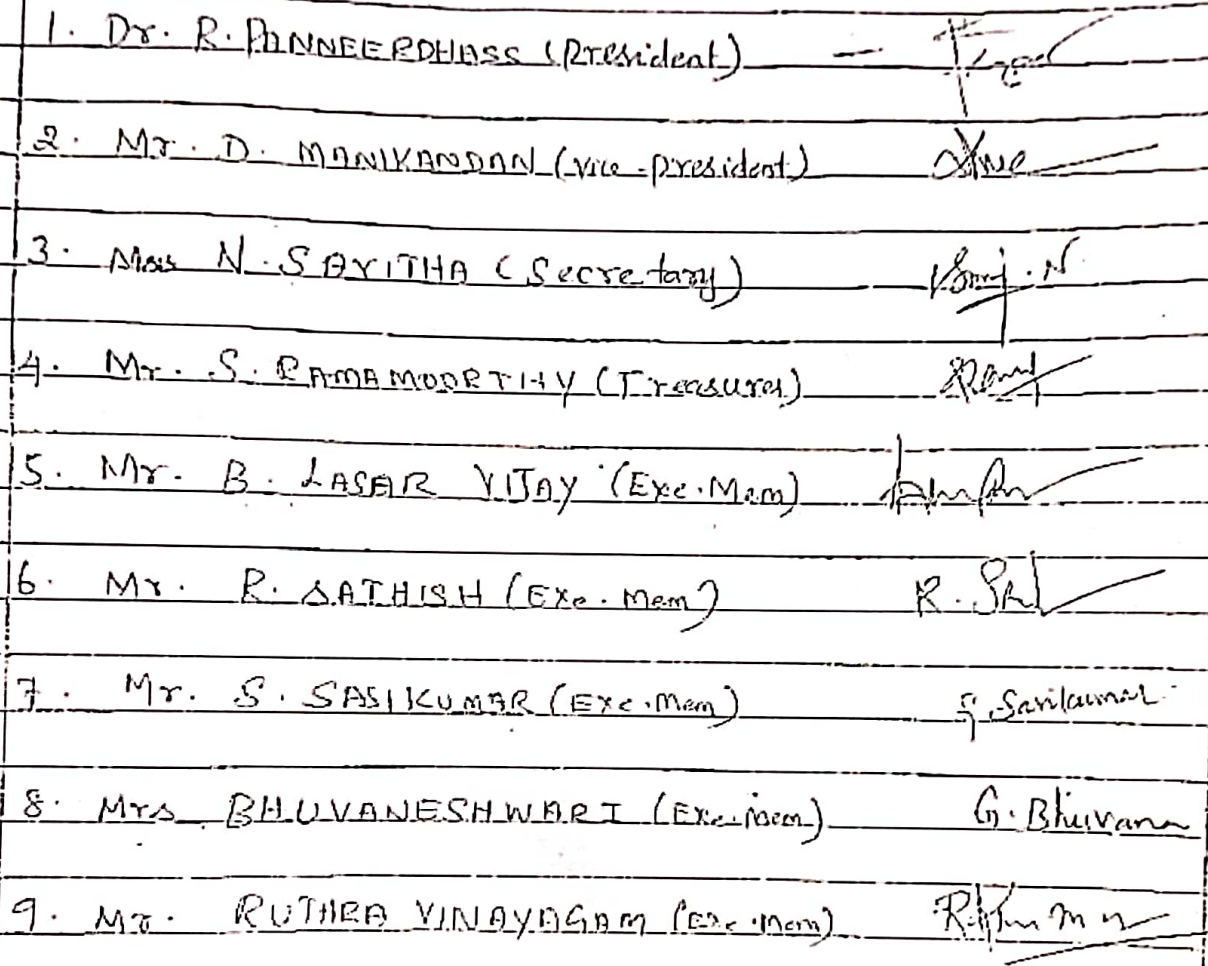 1. Dr. R. PANNEERDHASS (President) -
2. Mr. D. MANIKANDAN (vice-president)
3. N. SAVITHA (Secretary)
4. Mr. S. RAMAMOORTHY (Treasurer)
5. Mr. B. LASAR VIJAY (Exe. Mem)
6. Mr. R. SATHISH (Exe. Mem)
7. Mr. S. SASIKUMAR (Exe. Mem) S. Sasikumar
8. Mrs BHUVANESHWARI (Exe. Mem) G. Bhuvana
9. Mr. RUTHRA VINAYAGAM (Exe. Mem)